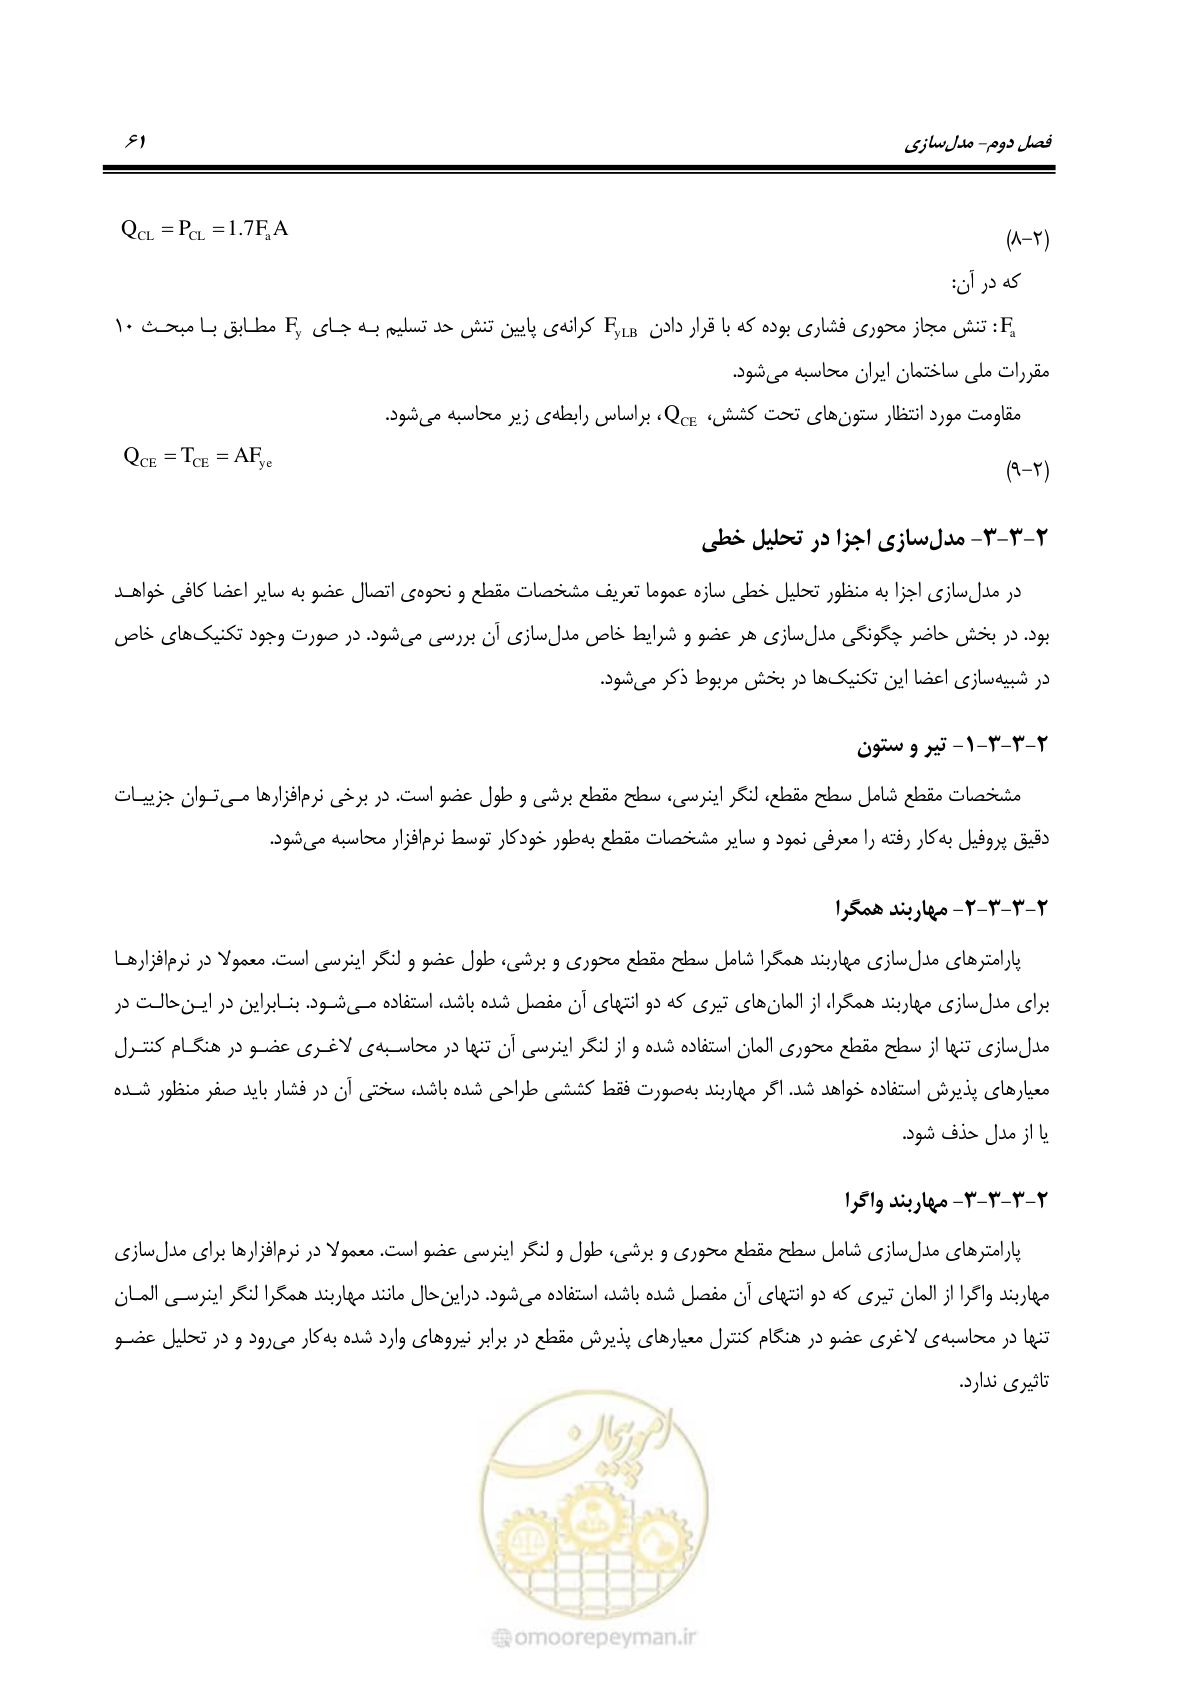 فصل دوم- مدل‌سازی ۶۱
(۲-۸) Q_CL = P_CL = 1.7F_a A
که در آن:
F_a: تنش مجاز محوری فشاری بوده که با قرار دادن F_yLB کرانه‌ی پایین تنش حد تسلیم به جای F_y مطابق با مبحث ۱۰
مقررات ملی ساختمان ایران محاسبه می‌شود.
مقاومت مورد انتظار ستون‌های تحت کشش، Q_CE، براساس رابطه‌ی زیر محاسبه می‌شود.
(۲-۹) Q_CE = T_CE = AF_ye
۲-۳-۳- مدل‌سازی اجزا در تحلیل خطی
در مدل‌سازی اجزا به منظور تحلیل خطی سازه عموما تعریف مشخصات مقطع و نحوه‌ی اتصال عضو به سایر اعضا کافی خواهد
بود. در بخش حاضر چگونگی مدل‌سازی هر عضو و شرایط خاص مدل‌سازی آن بررسی می‌شود. در صورت وجود تکنیک‌های خاص
در شبیه‌سازی اعضا این تکنیک‌ها در بخش مربوط ذکر می‌شود.
۲-۳-۳-۱- تیر و ستون
مشخصات مقطع شامل سطح مقطع، لنگر اینرسی، سطح مقطع برشی و طول عضو است. در برخی نرم‌افزارها می‌توان جزییات
دقیق پروفیل به‌کار رفته را معرفی نمود و سایر مشخصات مقطع به‌طور خودکار توسط نرم‌افزار محاسبه می‌شود.
۲-۳-۳-۲- مهاربند همگرا
پارامترهای مدل‌سازی مهاربند همگرا شامل سطح مقطع محوری و برشی، طول عضو و لنگر اینرسی است. معمولا در نرم‌افزارها
برای مدل‌سازی مهاربند همگرا، از المان‌های تیری که دو انتهای آن مفصل شده باشد، استفاده می‌شود. بنابراین در این‌حالت در
مدل‌سازی تنها از سطح مقطع محوری المان استفاده شده و از لنگر اینرسی آن تنها در محاسبه‌ی لاغری عضو در هنگام کنترل
معیارهای پذیرش استفاده خواهد شد. اگر مهاربند به‌صورت فقط کششی طراحی شده باشد، سختی آن در فشار باید صفر منظور شده
یا از مدل حذف شود.
۲-۳-۳-۳- مهاربند واگرا
پارامترهای مدل‌سازی شامل سطح مقطع محوری و برشی، طول و لنگر اینرسی عضو است. معمولا در نرم‌افزارها برای مدل‌سازی
مهاربند واگرا از المان تیری که دو انتهای آن مفصل شده باشد، استفاده می‌شود. دراین‌حال مانند مهاربند همگرا لنگر اینرسی المان
تنها در محاسبه‌ی لاغری عضو در هنگام کنترل معیارهای پذیرش مقطع در برابر نیروهای وارد شده به‌کار می‌رود و در تحلیل عضو
تاثیری ندارد.
امور پیمان
@omoorepeyman.ir